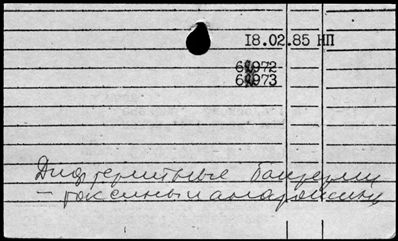 18.02.85 НП
6 972
6 973
Дифтерийные бактерии
— токсины и анатоксины